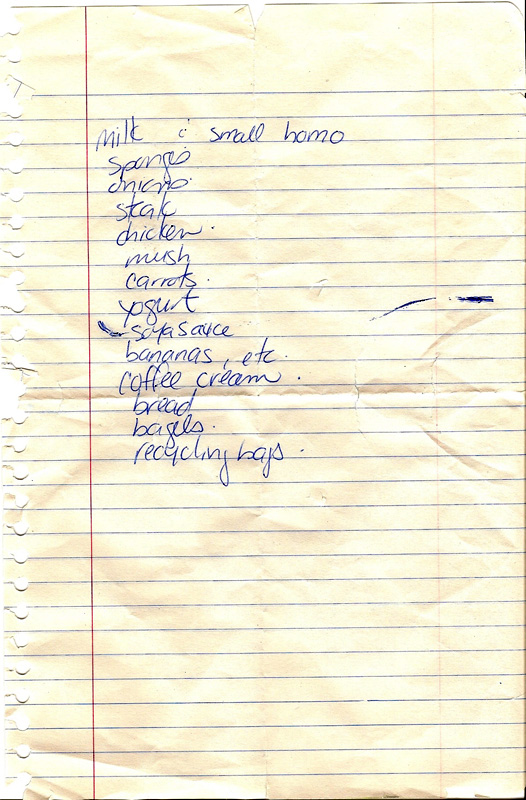 milk & small homo
sponges
onions.
steak
chicken.
mush
carrots.
yogurt
soya sauce
bananas, etc.
coffee cream.
bread
bagels.
recycling bags.